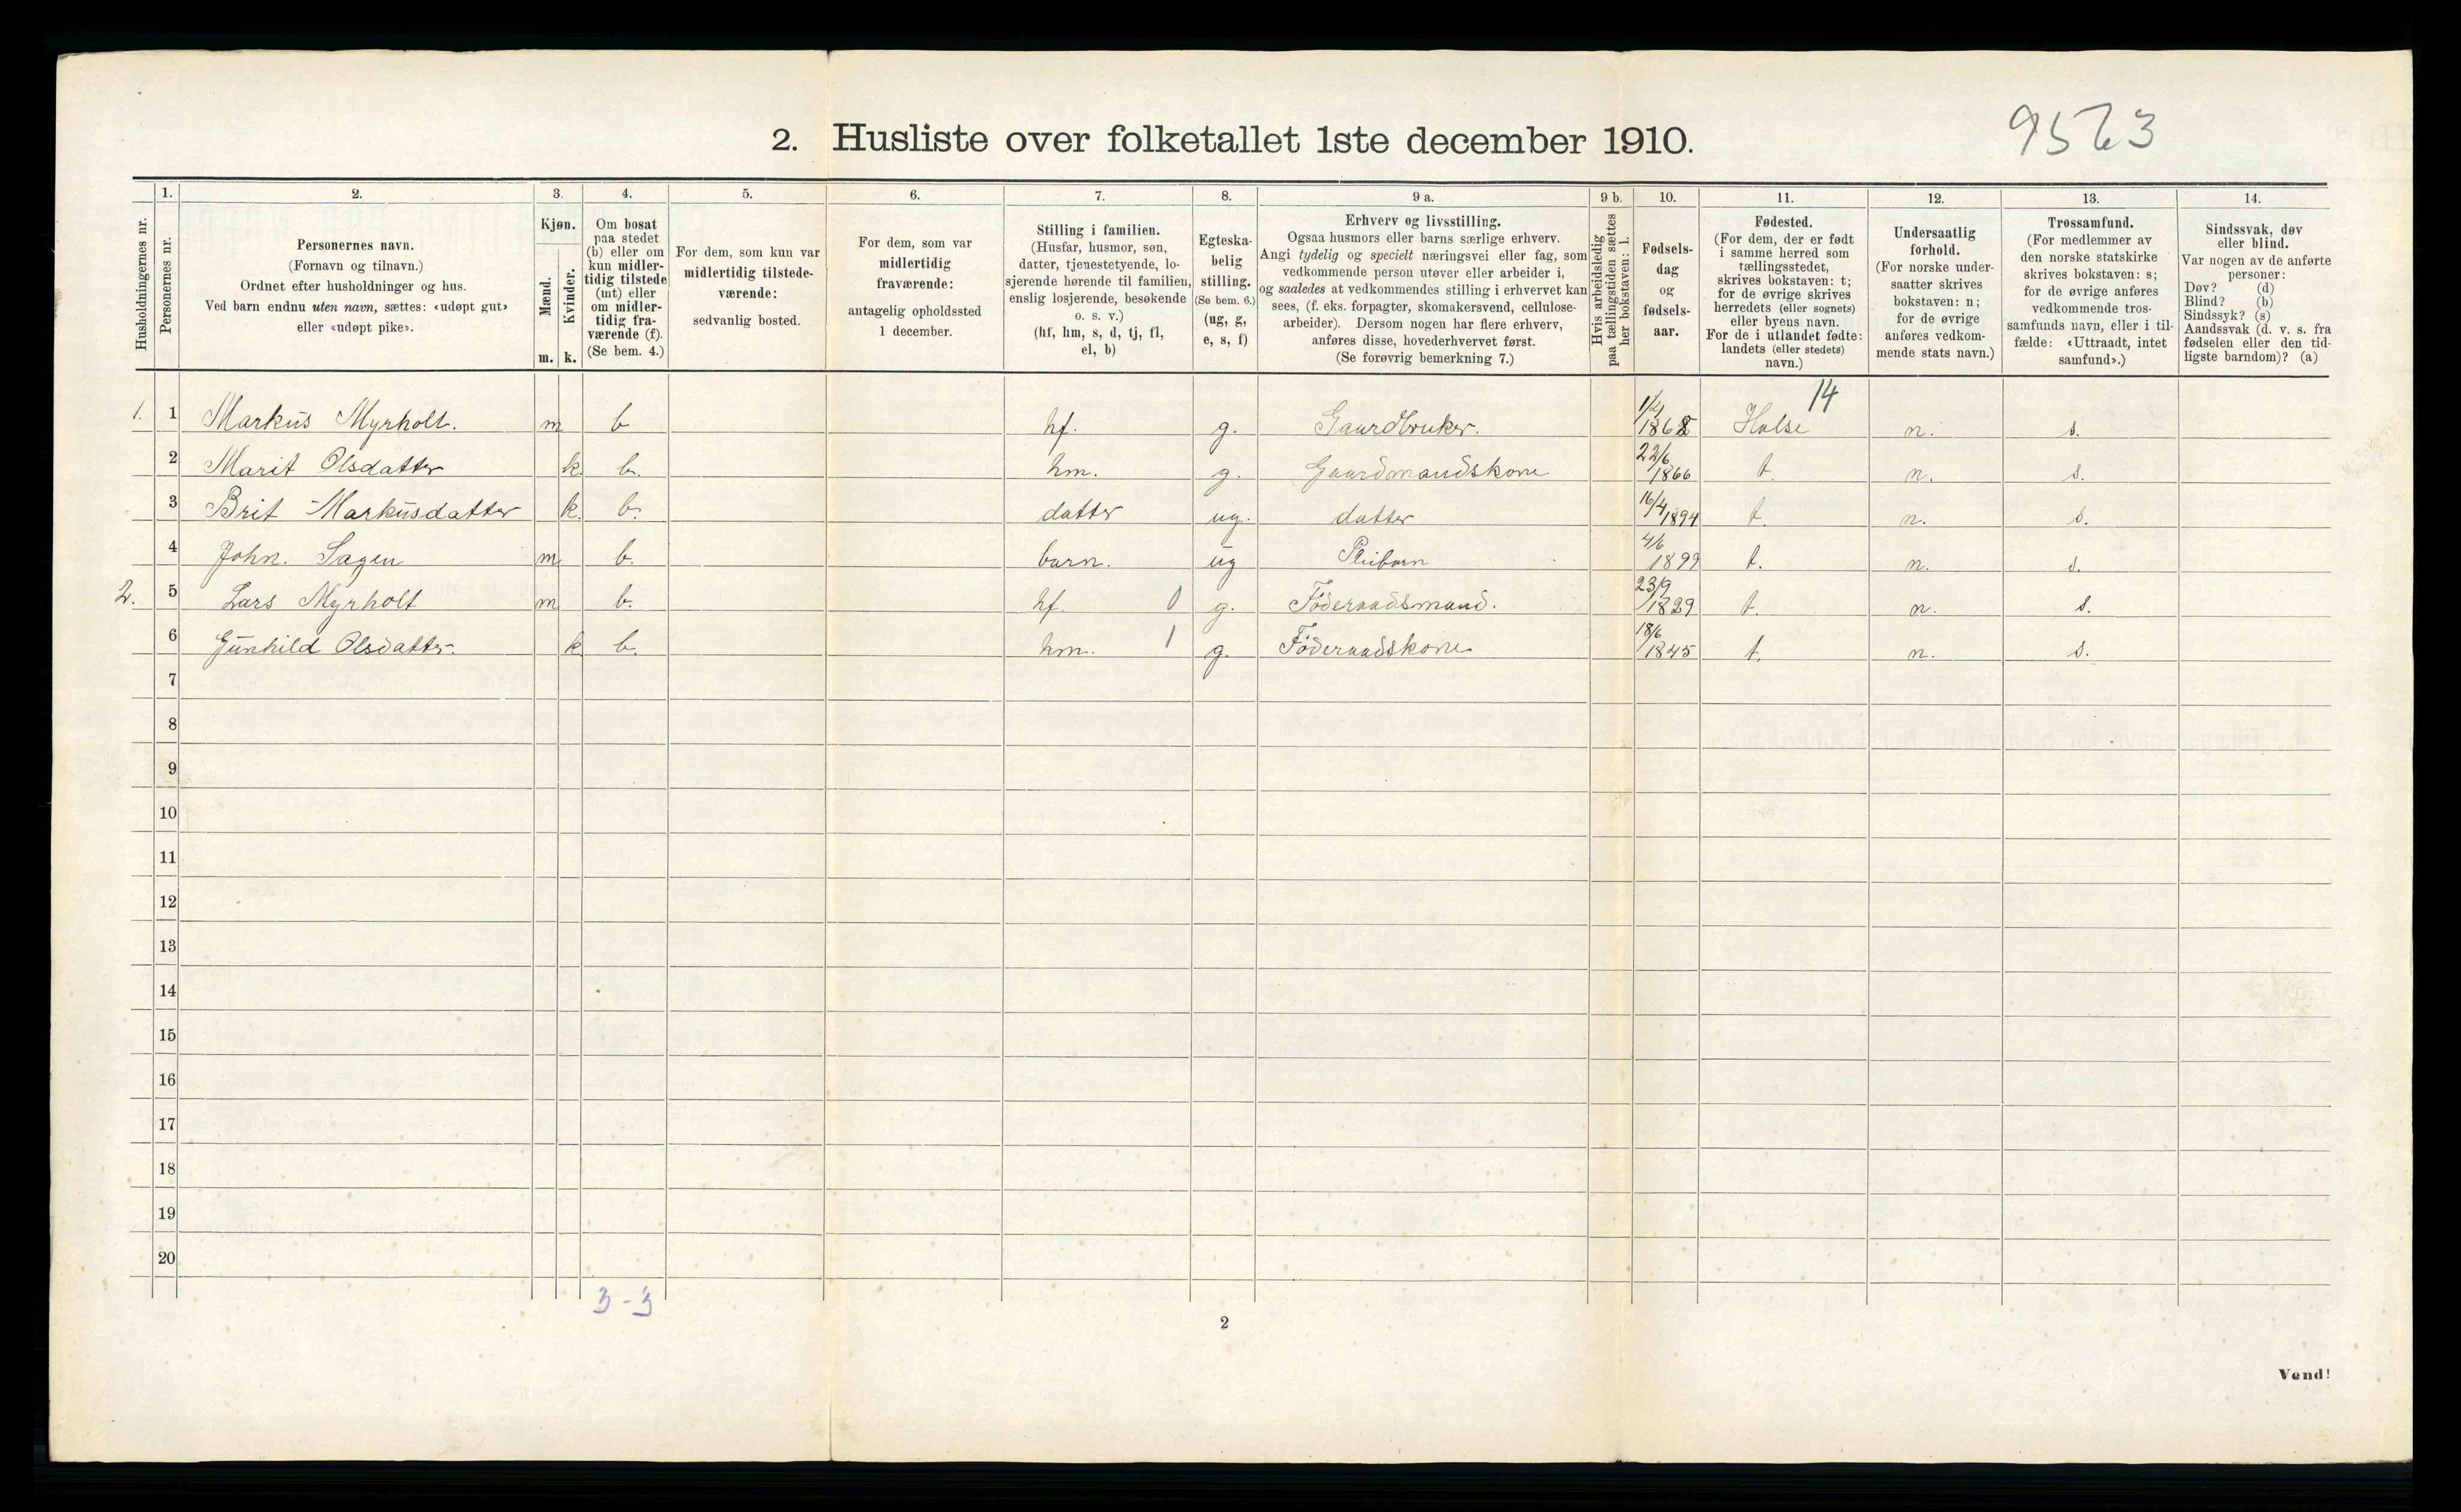 9563
2. Husliste over folketallet 1ste december 1910.
Husholdningernes nr.
1.
Personernes nr.
2.
Personernes navn.
(Fornavn og tilnavn.)
Ordnet efter husholdninger og hus.
Ved barn endnu uten navn, sættes: «udøpt gut»
eller «udøpt pike».
3.
Kjøn.
Mænd.
Kvinder.
m. k.
4.
Om bosat
paa stedet
(b) eller om
kun midler-
tidig tilstede
(mt) eller
om midler-
tidig fra-
værende (f).
(Se bem. 4.)
5.
For dem, som kun var
midlertidig tilstede-
værende:
sedvanlig bosted.
6.
For dem, som var
midlertidig
fraværende:
antagelig opholdssted
1 december.
7.
Stilling i familien.
(Husfar, husmor, søn,
datter, tjenestetyende, lo-
sjerende hørende til familien,
enslig losjerende, besøkende
o. s. v.)
(hf, hm, s, d, tj, fl,
el, b)
8.
Egteska-
belig
stilling.
(Se bem. 6.)
(ug, g,
e, s, f)
9 a.
Erhverv og livsstilling.
Ogsaa husmors eller barns særlige erhverv.
Angi tydelig og specielt næringsvei eller fag, som
vedkommende person utøver eller arbeider i,
og saaledes at vedkommendes stilling i erhvervet kan
sees, (f. eks. forpagter, skomakersvend, cellulose-
arbeider). Dersom nogen har flere erhverv,
anføres disse, hovederhvervet først.
(Se forøvrig bemerkning 7.)
9 b.
Hvis arbeidsledig
paa tællingstiden sættes
her bokstaven: l.
10.
Fødsels-
dag
og
fødsels-
aar.
11.
Fødested.
(For dem, der er født
i samme herred som
tællingsstedet,
skrives bokstaven: t;
for de øvrige skrives
herredets (eller sognets)
eller byens navn.
For de i utlandet fødte:
landets (eller stedets)
navn.)
12.
Undersaatlig
forhold.
(For norske under-
saatter skrives
bokstaven: n;
for de øvrige
anføres vedkom-
mende stats navn.)
13.
Trossamfund.
(For medlemmer av
den norske statskirke
skrives bokstaven: s;
for de øvrige anføres
vedkommende tros-
samfunds navn, eller i til-
fælde: «Uttraadt, intet
samfund».)
14.
Sindssvak, døv
eller blind.
Var nogen av de anførte
personer:
Døv? (d)
Blind? (b)
Sindssyk? (s)
Aandssvak (d. v. s. fra
fødselen eller den tid-
ligste barndom)? (a)
14
1. 1 Markus Myrholt. m b hf. g. Gaardbruker. 1868 Halse n. s.
2 Marit Olsdatter k b. hm. g. Gaardmandskone 22/6 1866 t. n. s.
3 Brit Markusdatter k. b. datter ug. datter 16/4 1894 t. n. s.
4 John. Sagen m b. barn. ug Pleibarn 4/6 1899 t. n. s.
2. 5 Lars Myrholt m b. hf. 0 g. Föderaadsmand. 23/9 1829 t. n. s.
6 Gunhild Olsdatter. k b. hm. 1 g. Föderaadskone 18/6 1845 t. n. s.
7
8
9
10
11
12
13
14
15
16
17
18
19
20
3-3
2
Vend!